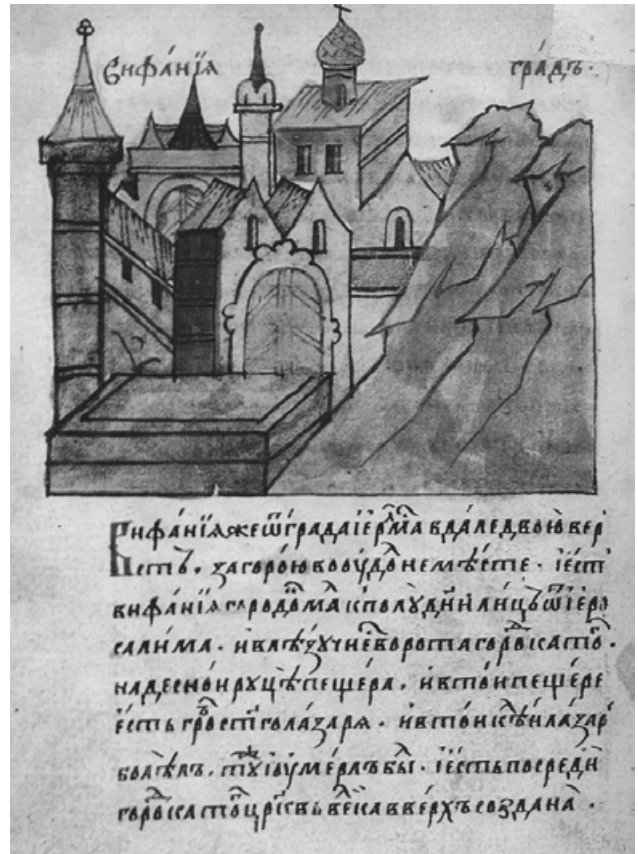 Виѳа́нїѧ гра́дъ·
Виѳа́нїѧ же ѿ гра́да іер҇лма вдале двою вер
стъ, за горо́ю во оудо́лнем мѣсте. і ест
виѳа́нїѧ городо́къ ма́лъ к полу́дню лицо́мъ ѿ іеро
сали́ма. и влѣ́зучи в ворота городка того.
на десно́и руцѣ пеще́ра. и в то́и пеще́ре
е́сть гроб ст҃го ла́заря. и в то́и ке́лїи ла́зарь
болѣлъ. ту́ і у́мерлъ бы. і е́сть посреди́
городка того́ цр҃кви вели́ка вве́рхъ со́здана.